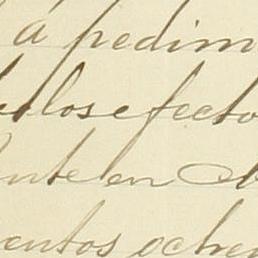 á pedim
los efecto
ente en
entos oche